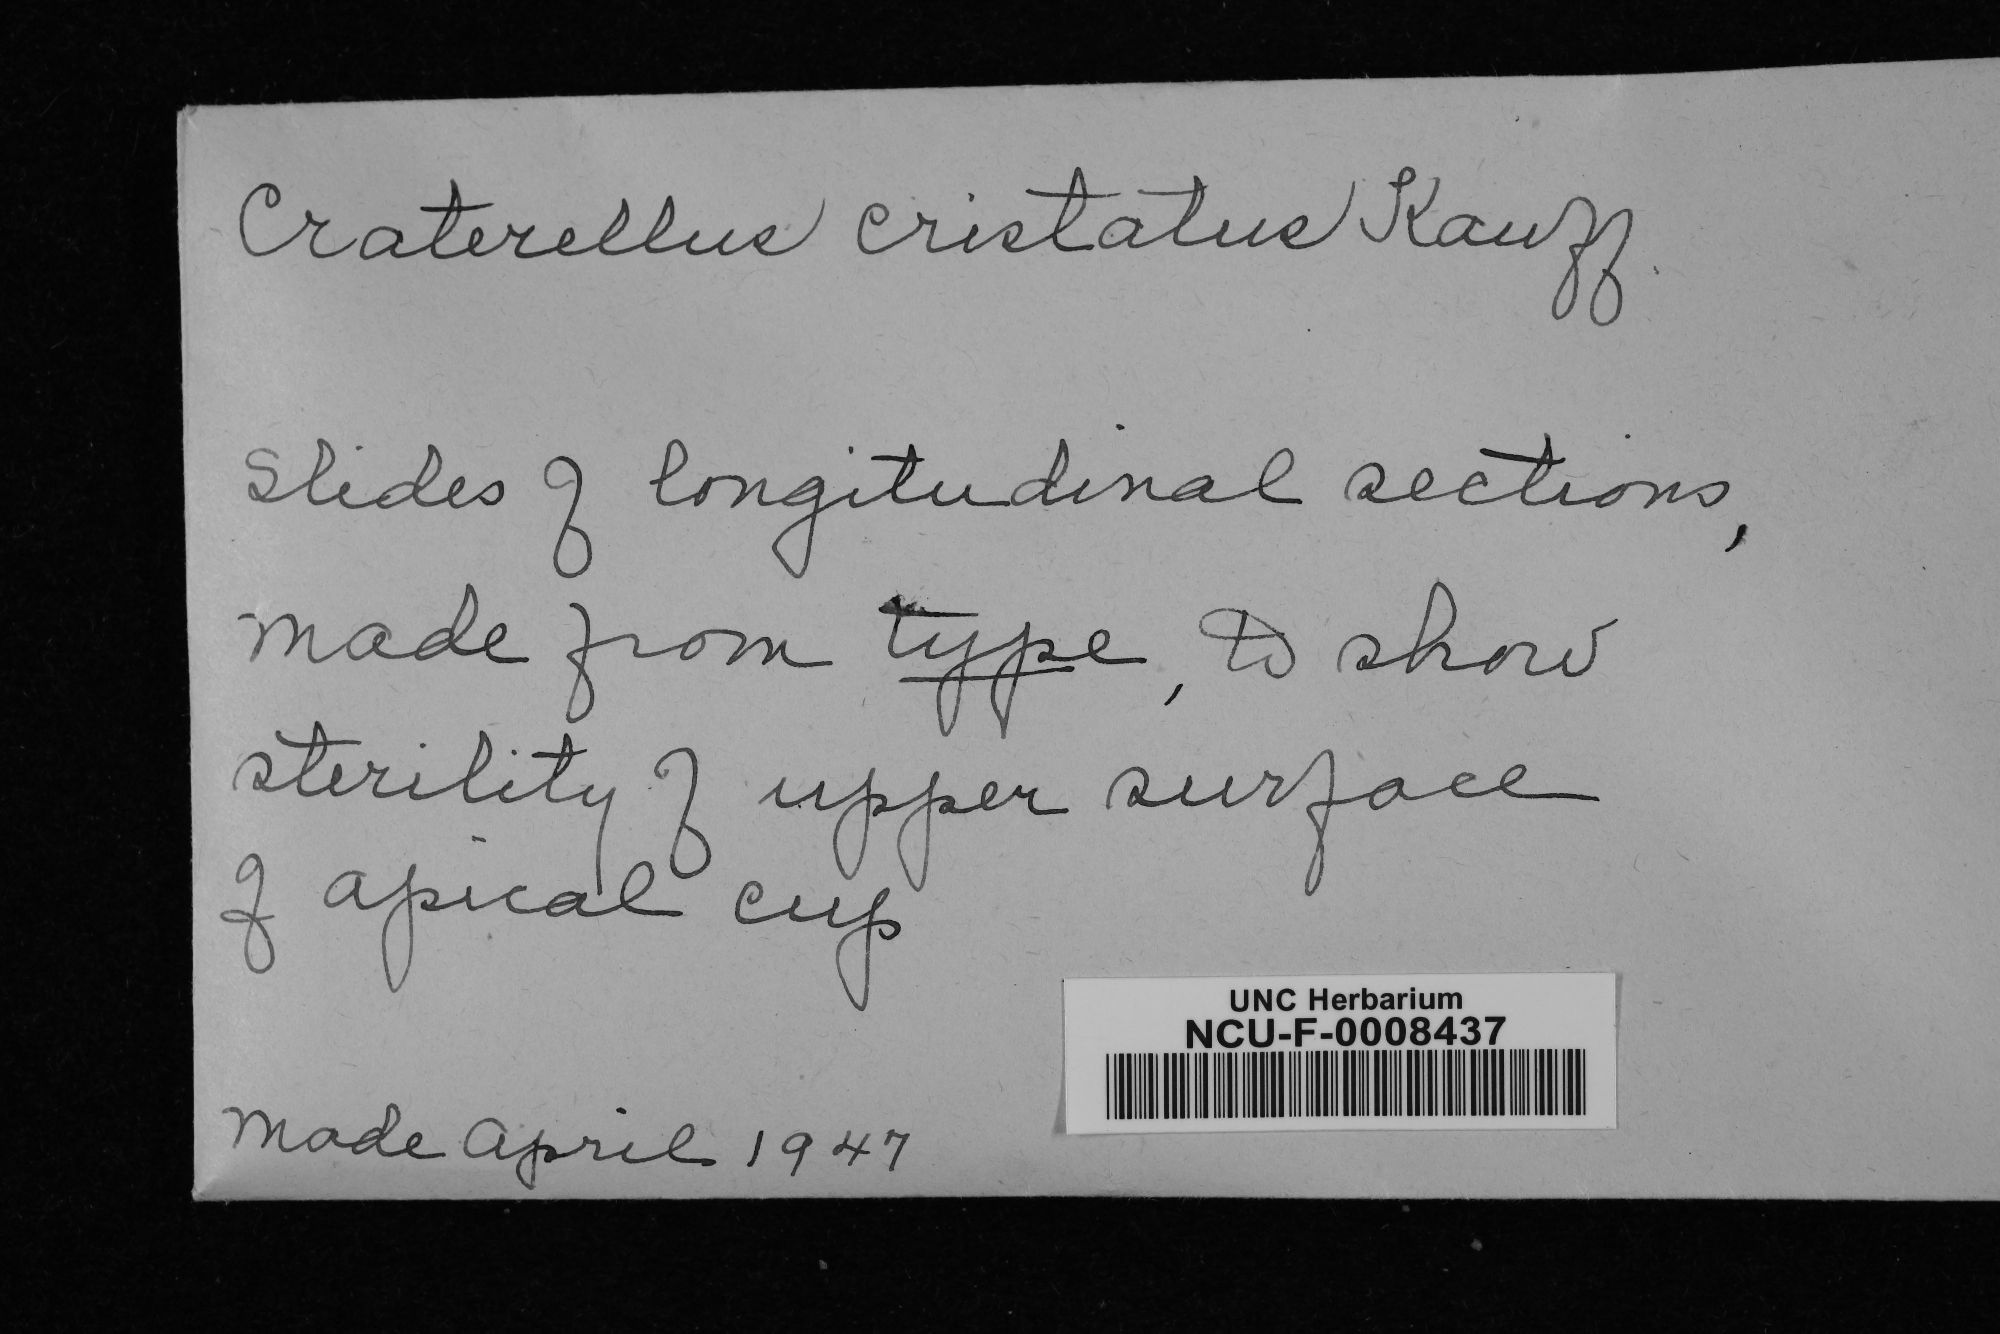 Craterellus cristatus Kauff.
Slides of longitudinal sections,
made from type, to show
sterility of upper surface
of apical cup
UNC Herbarium
NCU-F-0008437
Made April 1947